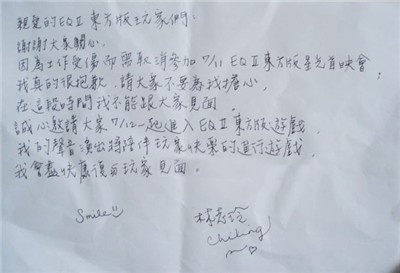 親愛的EQⅡ東方版玩家們：
謝謝大家關心。
因為工作受傷而需取消參加7/11 EQⅡ東方版星光首映會，
我真的很抱歉，請大家不要為我擔心，
在這段時間我不能跟大家見面。
誠心邀請大家7/12一起進入EQⅡ東方版遊戲，
我的聲音演出將陪伴玩家快樂的進行遊戲，
我會盡快康復与玩家見面。
Smile
林志玲
Chiling